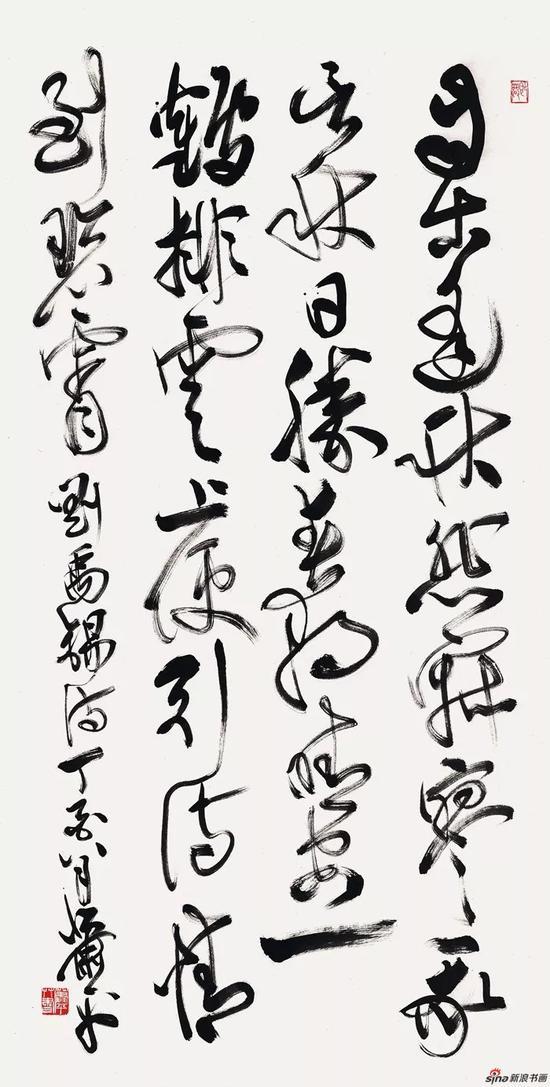 自古逢秋悲寂寥我
言秋日勝春朝晴空一
鶴排雲上便引詩情
到碧霄 劉禹錫詩丁酉八月
sina新浪书画